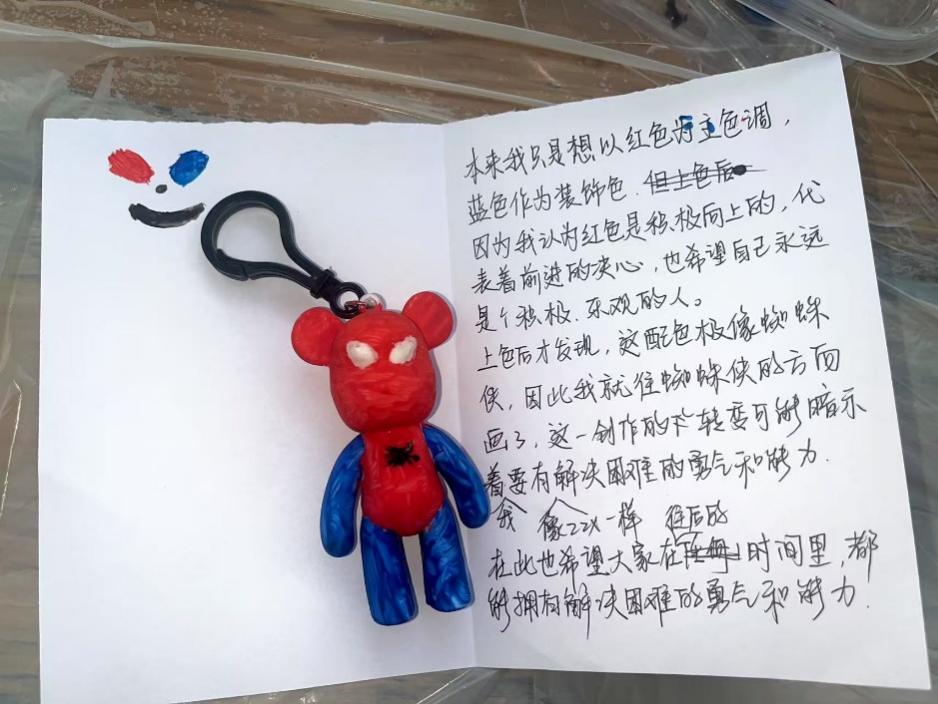 本来我只是想以红色为主色调,
蓝色作为装饰色. 但上色后
因为我认为红色是积极向上的, 代
表着前进的决心, 也希望自己永远
是个积极、乐观的人。
上色后才发现, 这配色极像蜘蛛
侠, 因此我就往蜘蛛侠的方面
画了, 这一创作的转变可能暗示
着要有解决困难的勇气和能力.
我 像ZZX一样 往后的
在此也希望大家在时间里, 都
能拥有解决困难的勇气和能力.